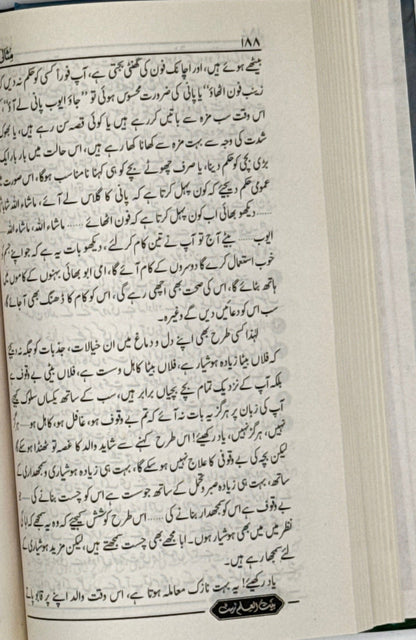 ۱۸۸
بیٹھے ہوئے ہیں، اور اچانک فون کی گھنٹی بجتی ہے، آپ فوراً کسی کو حکم نہ دیں
زینب فون اٹھاؤ“ یا پانی کی ضرورت محسوس ہوئی تو ”جاؤ ایوب پانی لے آؤ“
اس وقت سب مزہ سے باتیں کر رہے ہیں یا کوئی قصہ سن رہے ہیں، یا بھوک
شدت کی وجہ سے بہت مزہ سے کھانا کھا رہے ہیں، اس حالت میں بار بار ایک
بڑی بچی کو حکم دینا، یا صرف چھوٹے بچے کو ہی کہنا نامناسب ہوگا، اس صورت
عمومی حکم دیجیئے کہ کون پہل کرتا ہے کہ پانی کا گلاس لے آئے، ماشاء اللہ
...... دیکھو بھائی اب کون پہل کرتا ہے کہ فون اٹھائے ...... ماشاء اللہ، ماشاء اللہ
ایوب ...... بیٹے آج تو آپ نے تین کام کر لئے، دیکھو بات یہ ہے کہ جو اپنے
خوب استعمال کرے گا دوسروں کے کام آئے گا، امی ابو بھائی بہنوں کے کاموں
ہاتھ بٹائے گا، اس کی صحت بھی اچھی رہے گی، اس کو کام کا ڈھنگ بھی آ جائے
سب اس کو دعائیں دیں گے وغیرہ۔
لہٰذا کسی طرح بھی اپنے دل و دماغ میں ان خیالات، جذبات کو جگہ نہ
کہ فلاں بیٹا زیادہ ہوشیار ہے، فلاں بیٹا کاہل و سست ہے، فلاں بیٹی بے وقوف
بلکہ آپ کے نزدیک تمام بچے بچیاں برابر ہیں، سب کے ساتھ یکساں سلوک
آپ کی زبان پر ہرگز یہ بات نہ آئے کہ تم بے وقوف ہو، غافل ہو، کاہل ہو
نہیں، ہرگز نہیں، یاد رکھیئے! اس طرح کہنے سے شاید والد کا غصہ تو ٹھنڈا ہو
لیکن بچہ کی بے وقوفی کا علاج نہیں ہو سکے گا، بہت ہی زیادہ ہوشیاری و سمجھداری
ساتھ، بہت ہی زیادہ صبر و تحمل کے ساتھ جو سست ہے اس کو چست بنانے کی ......
بے وقوف ہے اس کو سمجھدار بنانے کی ...... اس طرح کوشش کیجیے کہ وہ یہ سمجھے کہ
نظر میں میں بھی ہوشیار ہوں۔ ابا مجھے بھی چست سمجھتے ہیں، لیکن مزید ہوشیاری
لئے سمجھا رہے ہیں۔
یاد رکھیئے! یہ بہت نازک معاملہ ہوتا ہے، اس وقت والد اپنے پر قابو
بیت العلم ٹرسٹ